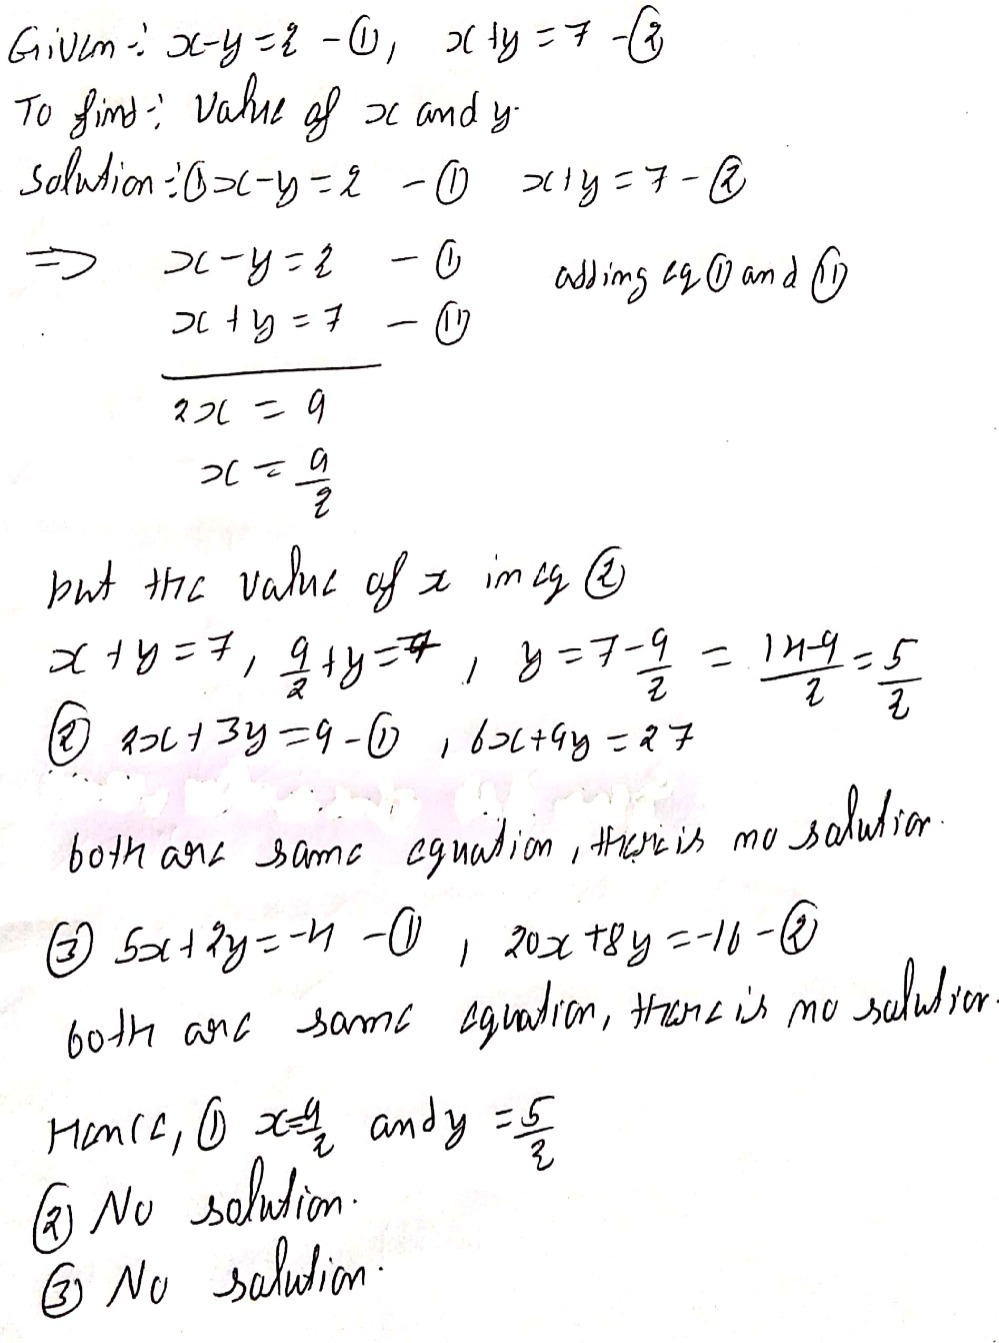 Given :- x-y=2 - ①, x+y=7 - ②
To find :- Value of x and y.
Solution :- ① x-y=2 - ① x+y=7 - ②
=> x-y=2 - ① adding eq ① and ⑪
x+y=7 - ⑪
2x = 9
x = 9/2
put the value of x in eq ②
x+y=7, 9/2+y=7, y=7-9/2 = 14-9/2 = 5/2
② 2x+3y=9 - ①, 6x+9y=27
both are same equation, there is no solution.
③ 5x+2y=-4 - ①, 20x+8y=-16 - ②
both are same equation, there is no solution.
Hence, ① x=9/2 and y=5/2
② No solution.
③ No solution.